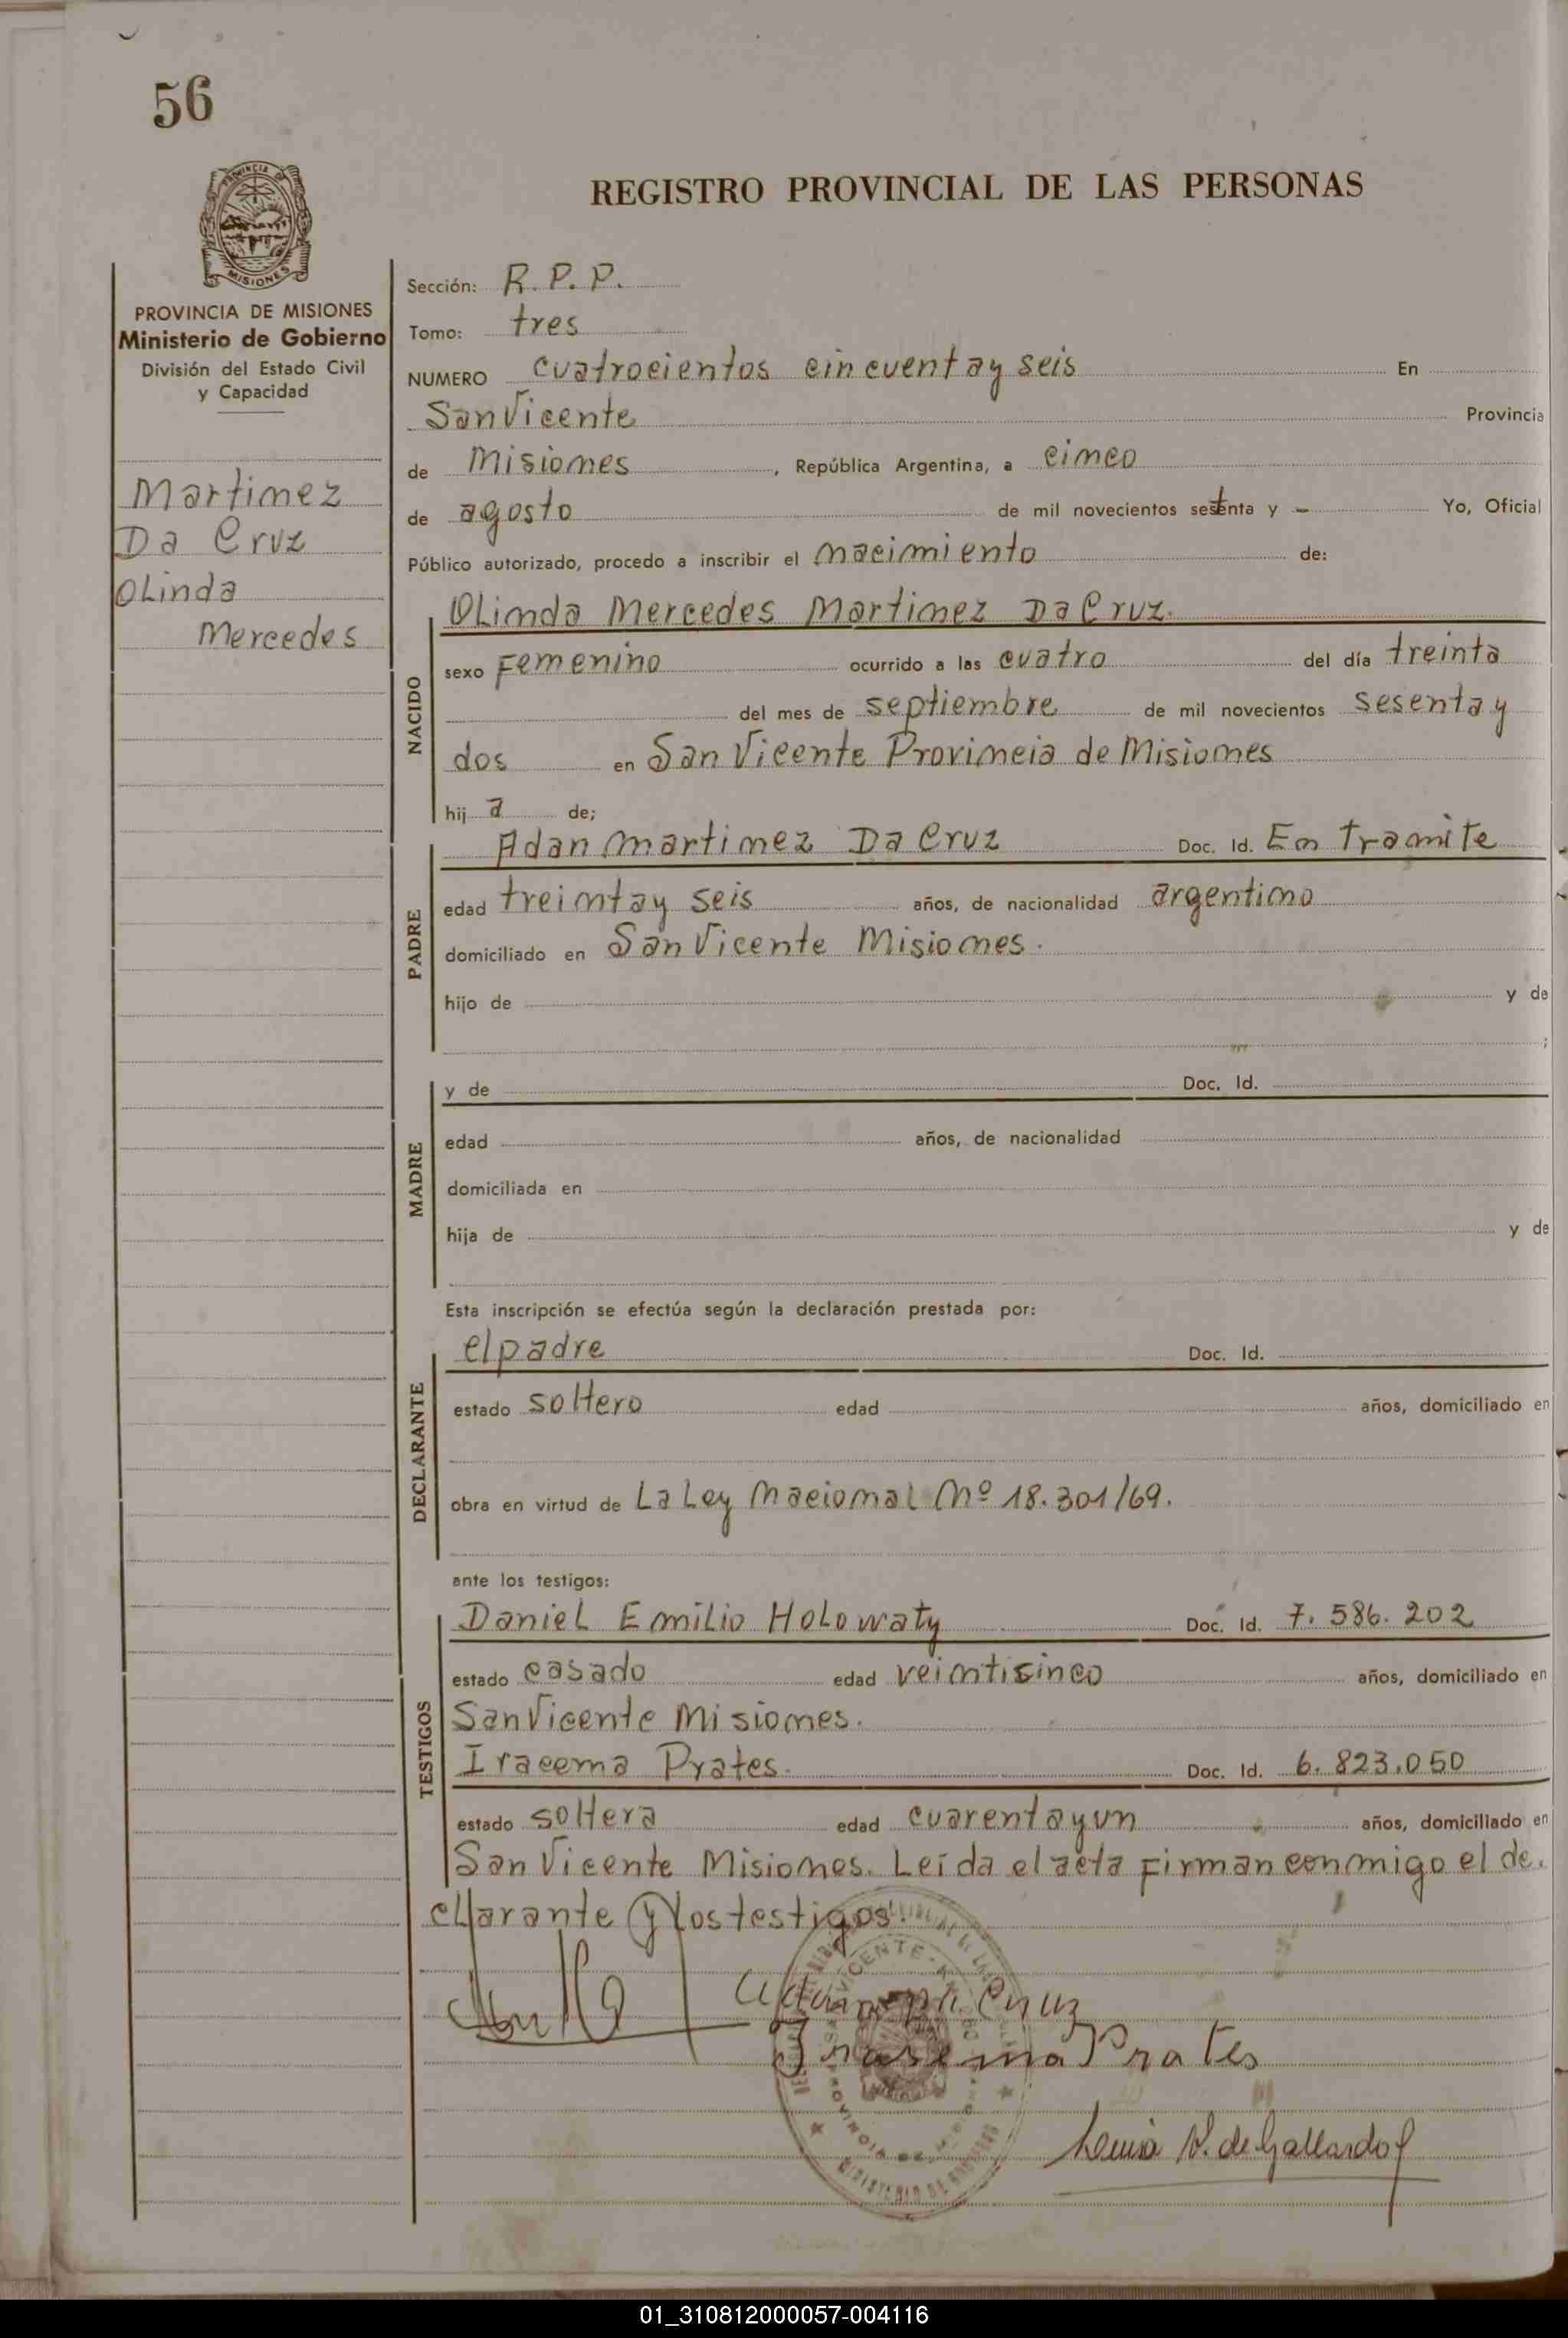 56
PROVINCIA DE
MISIONES
REGISTRO PROVINCIAL DE LAS PERSONAS
PROVINCIA DE MISIONES
Ministerio de Gobierno
División del Estado Civil
y Capacidad
Martinez
Da Cruz
Olinda
Mercedes
Sección: R. P. P.
Tomo: tres
NUMERO cuatrocientos cincuenta y seis En
San Vicente Provincia
de Misiones, República Argentina, a cinco
de agosto de mil novecientos setenta y - Yo, Oficial
Público autorizado, procedo a inscribir el nacimiento de:
NACIDO
Olinda Mercedes Martinez Da Cruz.
sexo Femenino ocurrido a las cuatro del día treinta
del mes de septiembre de mil novecientos sesenta y
dos en San Vicente Provincia de Misiones
hij a de;
PADRE
Adan Martinez Da Cruz Doc. Id. En Tramite
edad treinta y seis años, de nacionalidad argentino
domiciliado en San Vicente Misiones.
hijo de y de
;
MADRE
y de Doc. Id.
edad años, de nacionalidad
domiciliada en
hija de y de
Esta inscripción se efectúa según la declaración prestada por:
DECLARANTE
el padre Doc. Id.
estado soltero edad años, domiciliado en
obra en virtud de La Ley Nacional Nº 18.301/69.
ante los testigos:
TESTIGOS
Daniel Emilio Holowaty Doc. Id. 7.586.202
estado casado edad veintisinco años, domiciliado en
San Vicente Misiones.
Iracema Prates. Doc. Id. 6.823.050
estado soltera edad cuarenta y un años, domiciliado en
San Vicente Misiones. Leída el acta firman conmigo el de.
cllarante y los testigos.
Cruz
Irasema Prates
de Gallardo
01_310812000057-004116